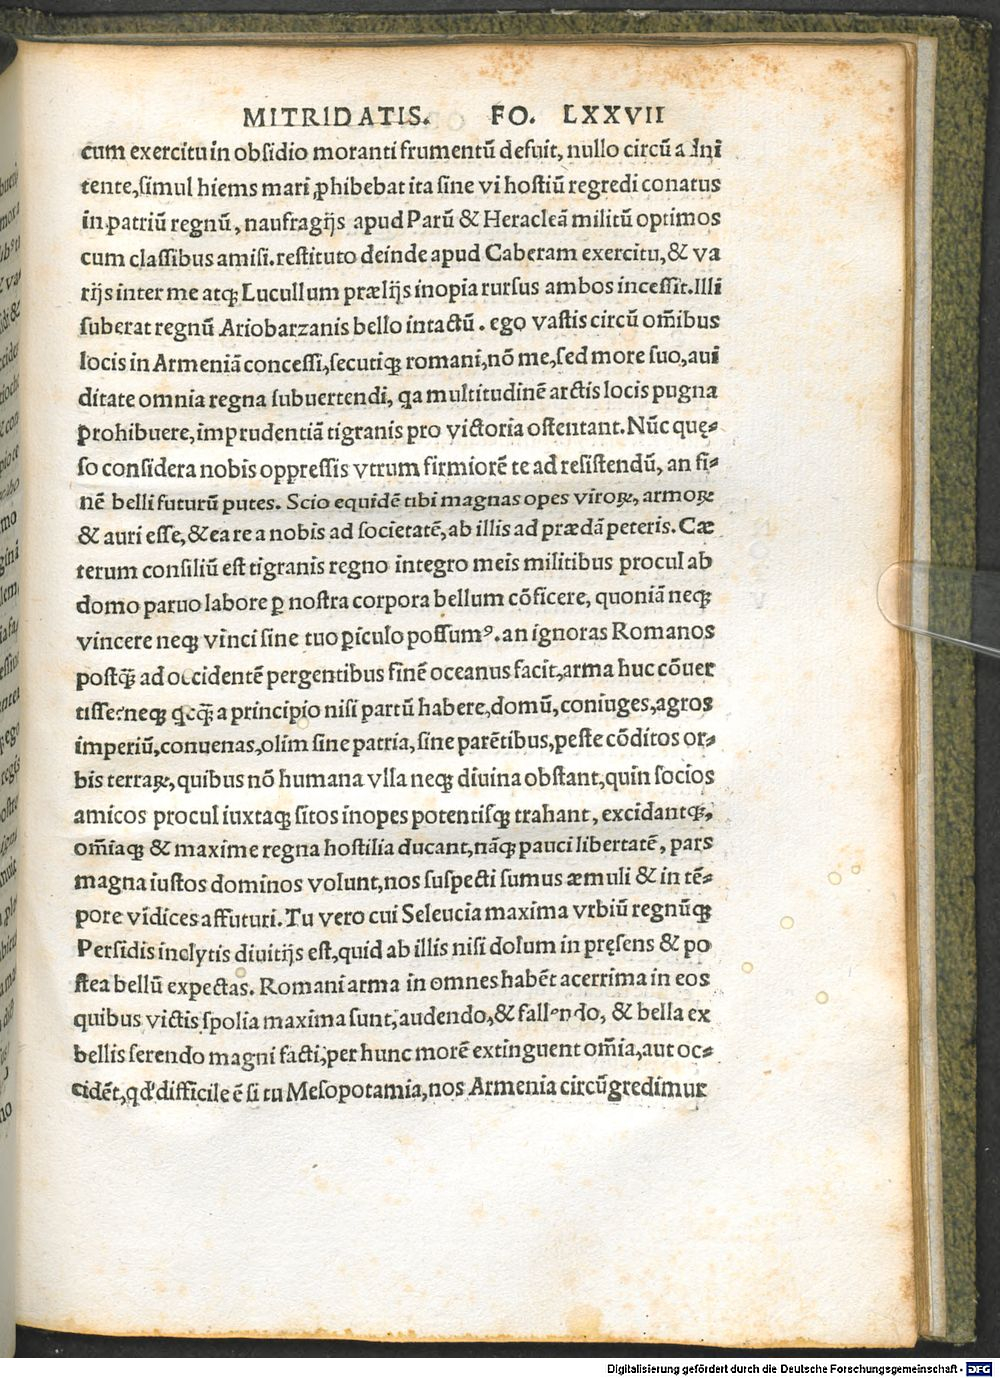 MITRIDATIS. FO. LXXVII
cum exercitu in obſidio moranti frumentū defuit, nullo circū a .lni
tente, ſimul hiems mari ꝓhibebat ita ſine vi hoſtiū regredi conatus
in patriū regnū, naufragijs apud Parū & Heracleā militū optimos
cum claſſibus amiſi. reſtituto deinde apud Caberam exercitu, & va
rijs inter me atqꝫ Lucullum prælijs inopia rurſus ambos inceſſit. Illi
ſuberat regnū Ariobarzanis bello intactū. ego vaſtis circū om̄ibus
locis in Armeniā conceſſi, ſecutiqꝫ romani, nō me, ſed more ſuo, aui
ditate omnia regna ſubuertendi, qa multitudinē arctis locis pugna
prohibuere, imprudentiā tigranis pro victoria oſtentant. Nūc quę⸗
ſo conſidera nobis oppreſſis vtrum firmiorē te ad reſiſtendū, an fi⸗
nē belli futurū putes. Scio equidē tibi magnas opes viroꝝ, armoꝝ
& auri eſſe, & ea re a nobis ad ſocietatē, ab illis ad prædā peteris. Cæ
terum conſiliū eſt tigranis regno integro meis militibus procul ab
domo paruo labore ꝑ noſtra corpora bellum cōficere, quoniā neqꝫ
vincere neqꝫ vinci ſine tuo ꝑiculo poſſumꝰ. an ignoras Romanos
poſtqꝫ̄ ad occidentē pergentibus finē oceanus facit, arma huc cōuer
tiſſe: neqꝫ qcqꝫ̄ a principio niſi partū habere, domū, coniuges, agros
imperiū, conuenas, olim ſine patria, ſine parētibus, peſte cōditos or⸗
bis terraꝝ, quibus nō humana vlla neqꝫ diuina obſtant, quin ſocios
amicos procul iuxtaqꝫ ſitos inopes potentiſqꝫ trahant, excidantqꝫ,
om̄iaqꝫ & maxime regna hoſtilia ducant, nāqꝫ pauci libertatē, pars
magna iuſtos dominos volunt, nos ſuſpecti ſumus æmuli & in tē⸗
pore vīdices affuturi. Tu vero cui Seleucia maxima vrbiū regnūqꝫ
Perſidis inclytis diuitijs eſt, quid ab illis niſi dolum in pręſens & po
ſtea bellū expectas. Romani arma in omnes habēt acerrima in eos
quibus victis ſpolia maxima ſunt, audendo, & fallendo, & bella ex
bellis ſerendo magni facti, per hunc morē extinguent om̄ia, aut oc⸗
cidēt, qd' difficile ē ſi tu Meſopotamia, nos Armenia circūgredimur
Digitalisierung gefördert durch die Deutsche Forschungsgemeinschaft - DFG